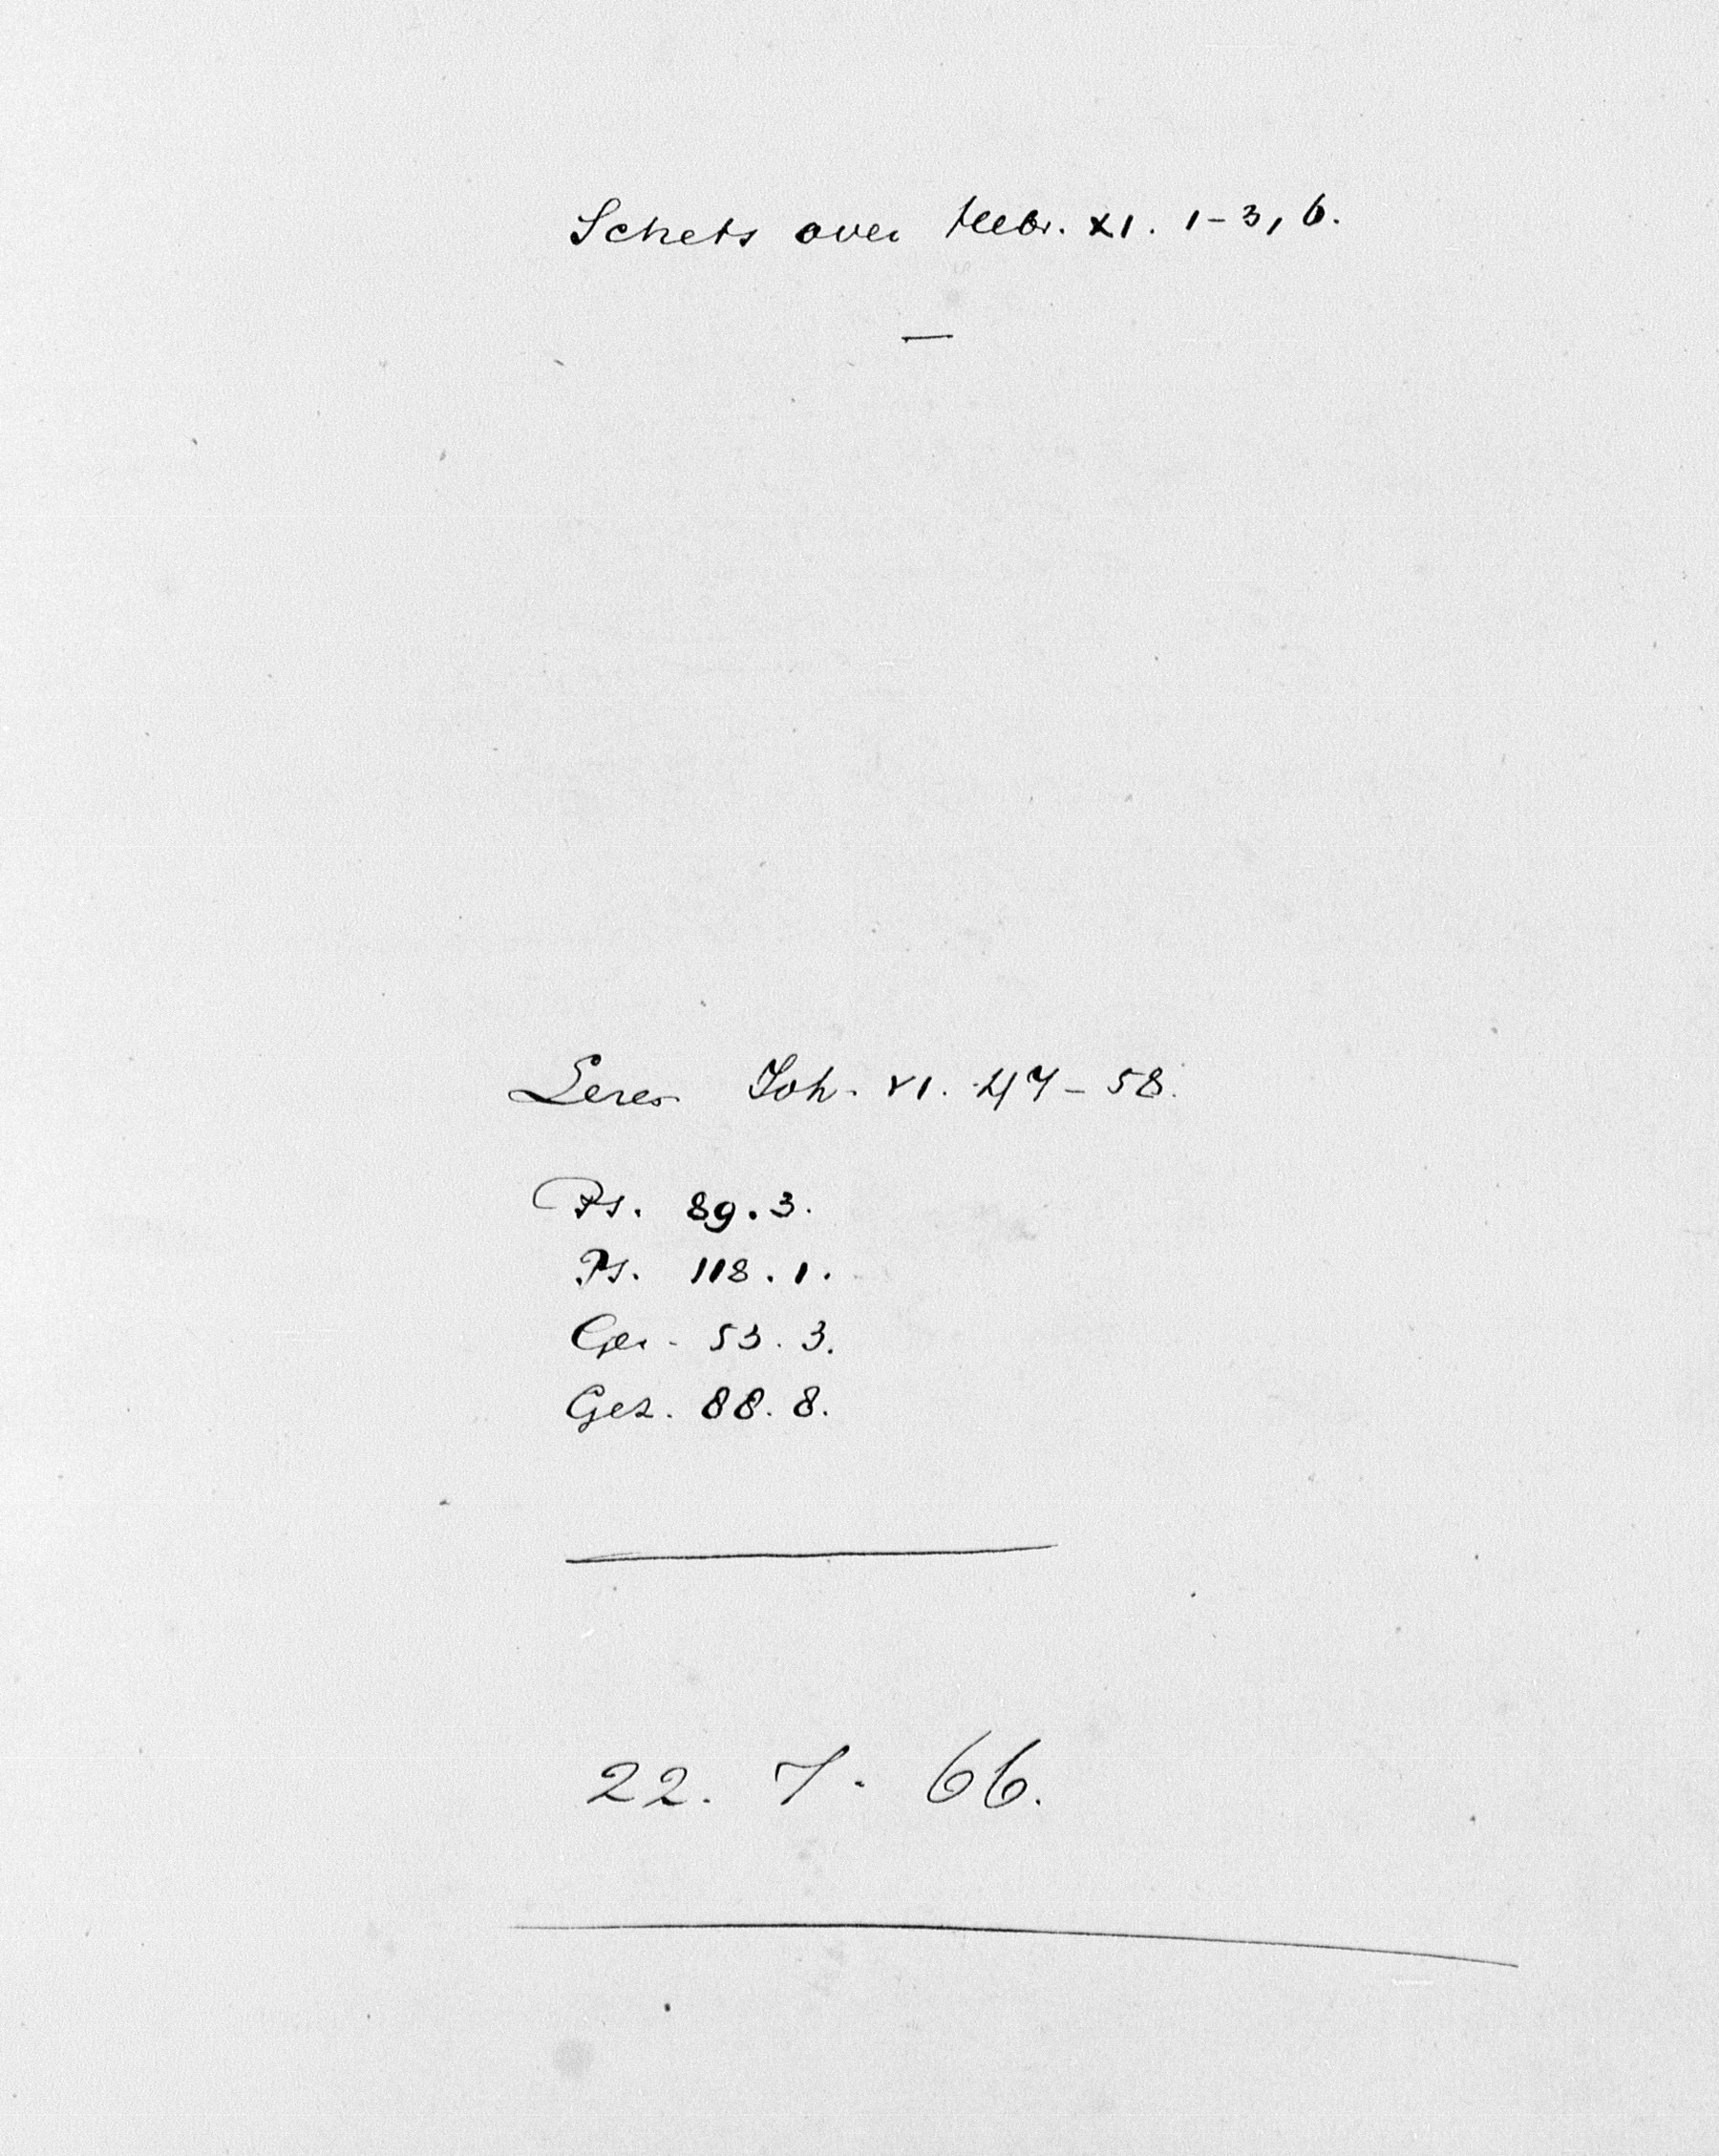 Schets over Hebr. XI. 1-3, 6.
Lezen Joh. VI. 47-58.
Ps. 89.3.
Ps. 118.1.
Gez. 53.3.
Gez. 88.8.
22. 7. 66.